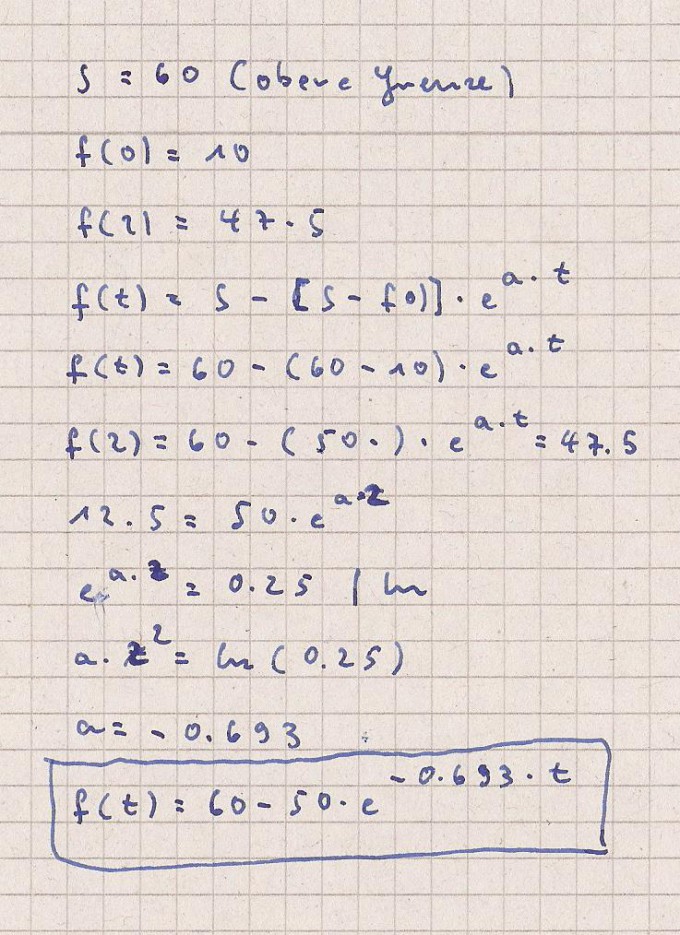 S = 60 (obere Grenze)
f(0) = 10
f(2) = 47.5
f(t) = S - [S - f0)] · e^a·t
f(t) = 60 - (60 - 10) · e^a·t
f(2) = 60 - (50·) · e^a·t = 47.5
12.5 = 50 · e^a·2
e^a·2 = 0.25 | ln
a · 2^2 = ln (0.25)
a = - 0.693
f(t) = 60 - 50 · e^-0.693 · t